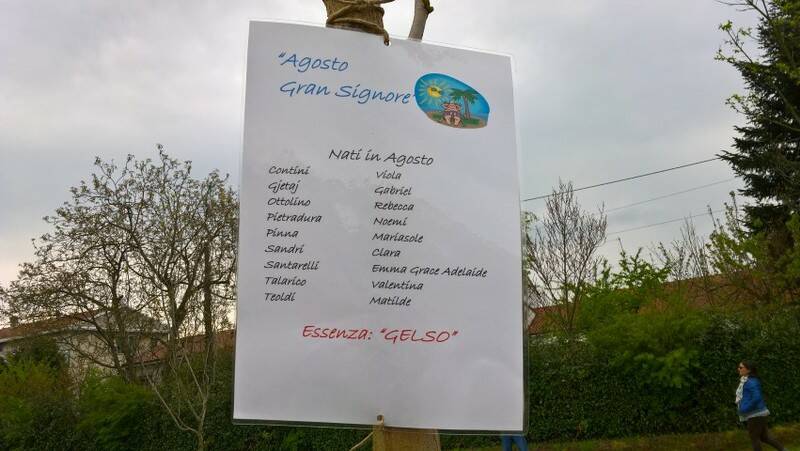 "Agosto
Gran Signore"
Nati in Agosto
Contini Viola
Gjetaj Gabriel
Ottolino Rebecca
Pietradura Noemi
Pinna Mariasole
Sandri Clara
Santarelli Emma Grace Adelaide
Talarico Valentina
Teoldi Matilde
Essenza: "GELSO"